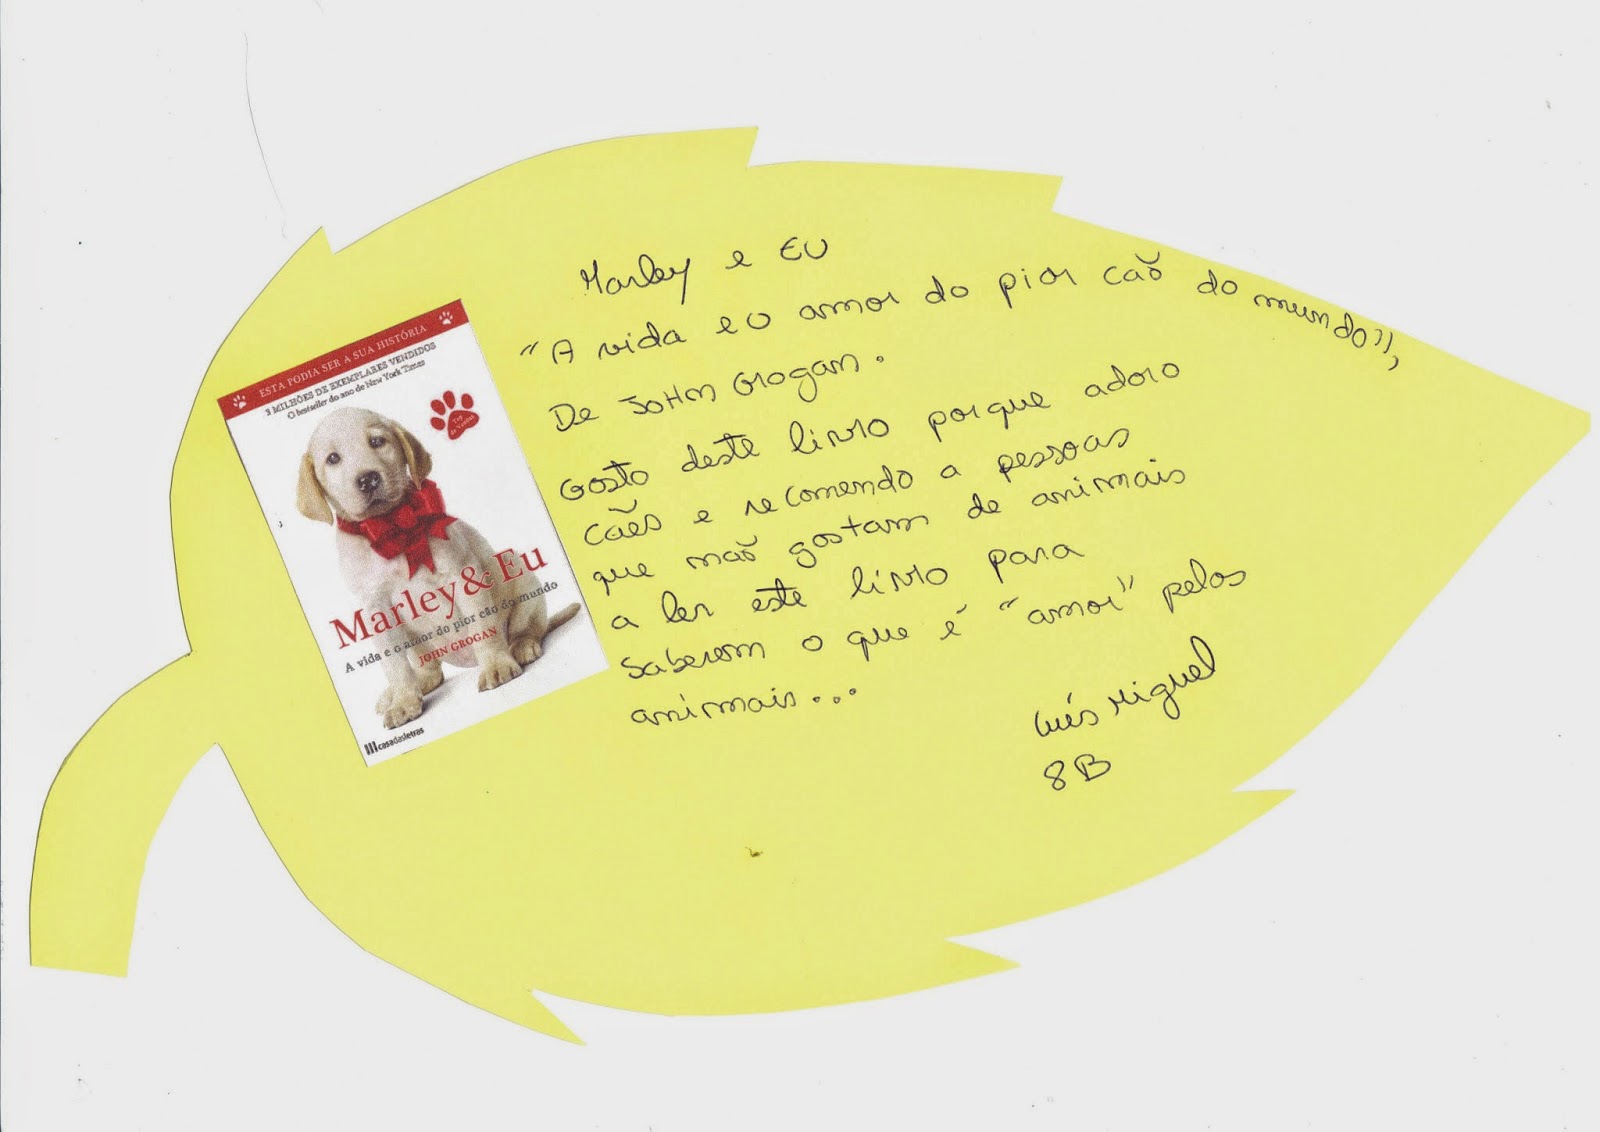 ESTA PODIA SER A SUA HISTÓRIA
3 MILHÕES DE EXEMPLARES VENDIDOS
O bestseller do ano de New York Times
Top
de Vendas
Marley & Eu
A vida e o amor do pior cão do mundo
JOHN GROGAN
casadasletras
Marley e EU
"A vida e o amor do pior cão do mundo",
De JoHn Grogan.
Gosto deste livro porque adoro
cães e recomendo a pessoas
que não gostam de animais
a ler este livro para
saberem o que é "amor" pelos
animais...
Inês Miguel
8B